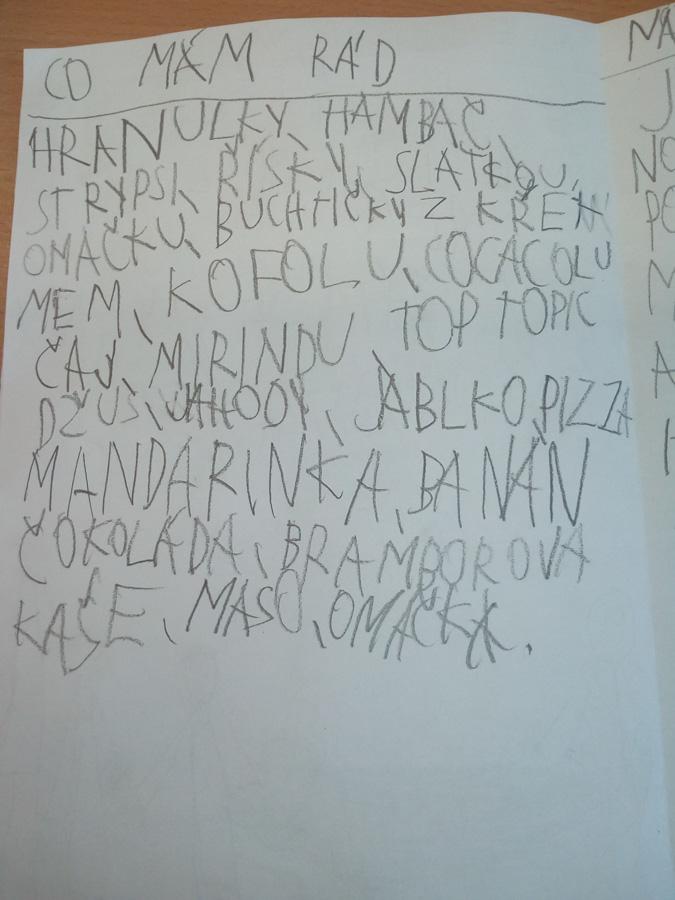 CO MÁM RÁD
HRANULKY, HAMBAČ,
STRYPSI, ŘÍSKY, SLATKOU,
OMAČKU, BUCHTIČKY Z KŘEM
MEM, KOFOLU, COCACOLU
ČAJ, MIRINDU, TOP TOPIC
DŽUS, JAHODY, JABLKO, PIZZA
MANDARINKA, BANÁN
ČOKOLÁDA, BRAMBOROVA
KAŠE, MASO, OMAČKA.
NÁ
J
NO
PO
M
A